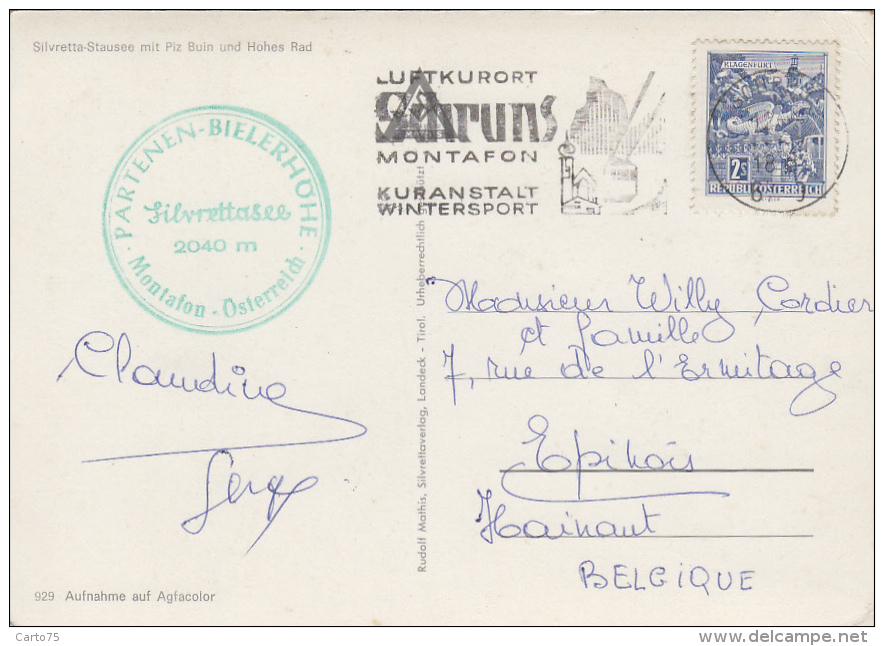 Silvretta-Stausee mit Piz Buin und Hohes Rad
PARTENEN-BIELERHÖHE
Silvrettasee
2040 m
Montafon - Österreich
LUFTKURORT
Schruns
MONTAFON
KURANSTALT
WINTERSPORT
KLAGENFURT
2S
REPUBLIK ÖSTERREICH
Monsieur Willy Cordier
et famille
7, rue de l'Ermitage
Epinois
Hainaut
BELGIQUE
Claudine
Serge
Rudolf Mathis, Silvrettaverlag, Landeck - Tirol. Urheberrechtlich geschützt
929 Aufnahme auf Agfacolor
Carto75